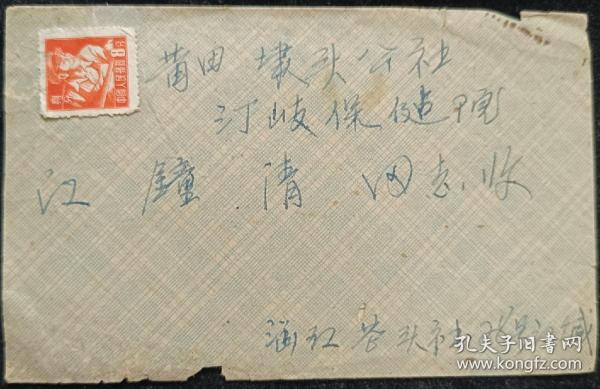 莆田埭头公社
汀岐保健院
江鐘清同志收
涵江苍头
8分
中国人民邮政
孔夫子旧书网
www.kongfz.com